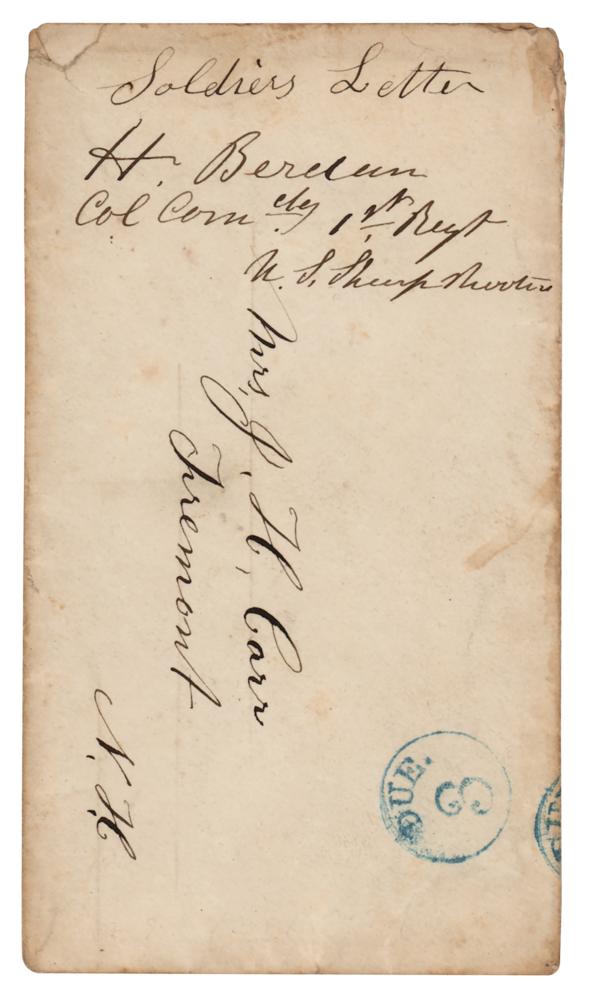 Soldiers Letter
H. Berdan
Col Comdg 1st Regt
U. S. Sharp Shooters
Mrs, J. H. Carr
Fremont
N. H
DUE. 3